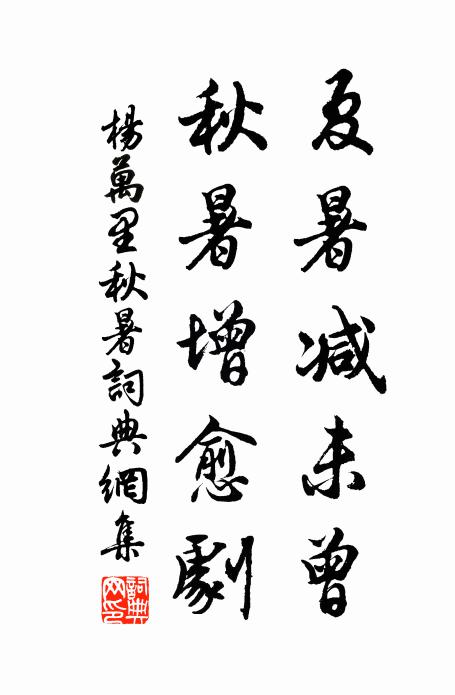 夏暑減未曾
秋暑增愈劇
楊萬里秋暑詞典網集
詞典網印